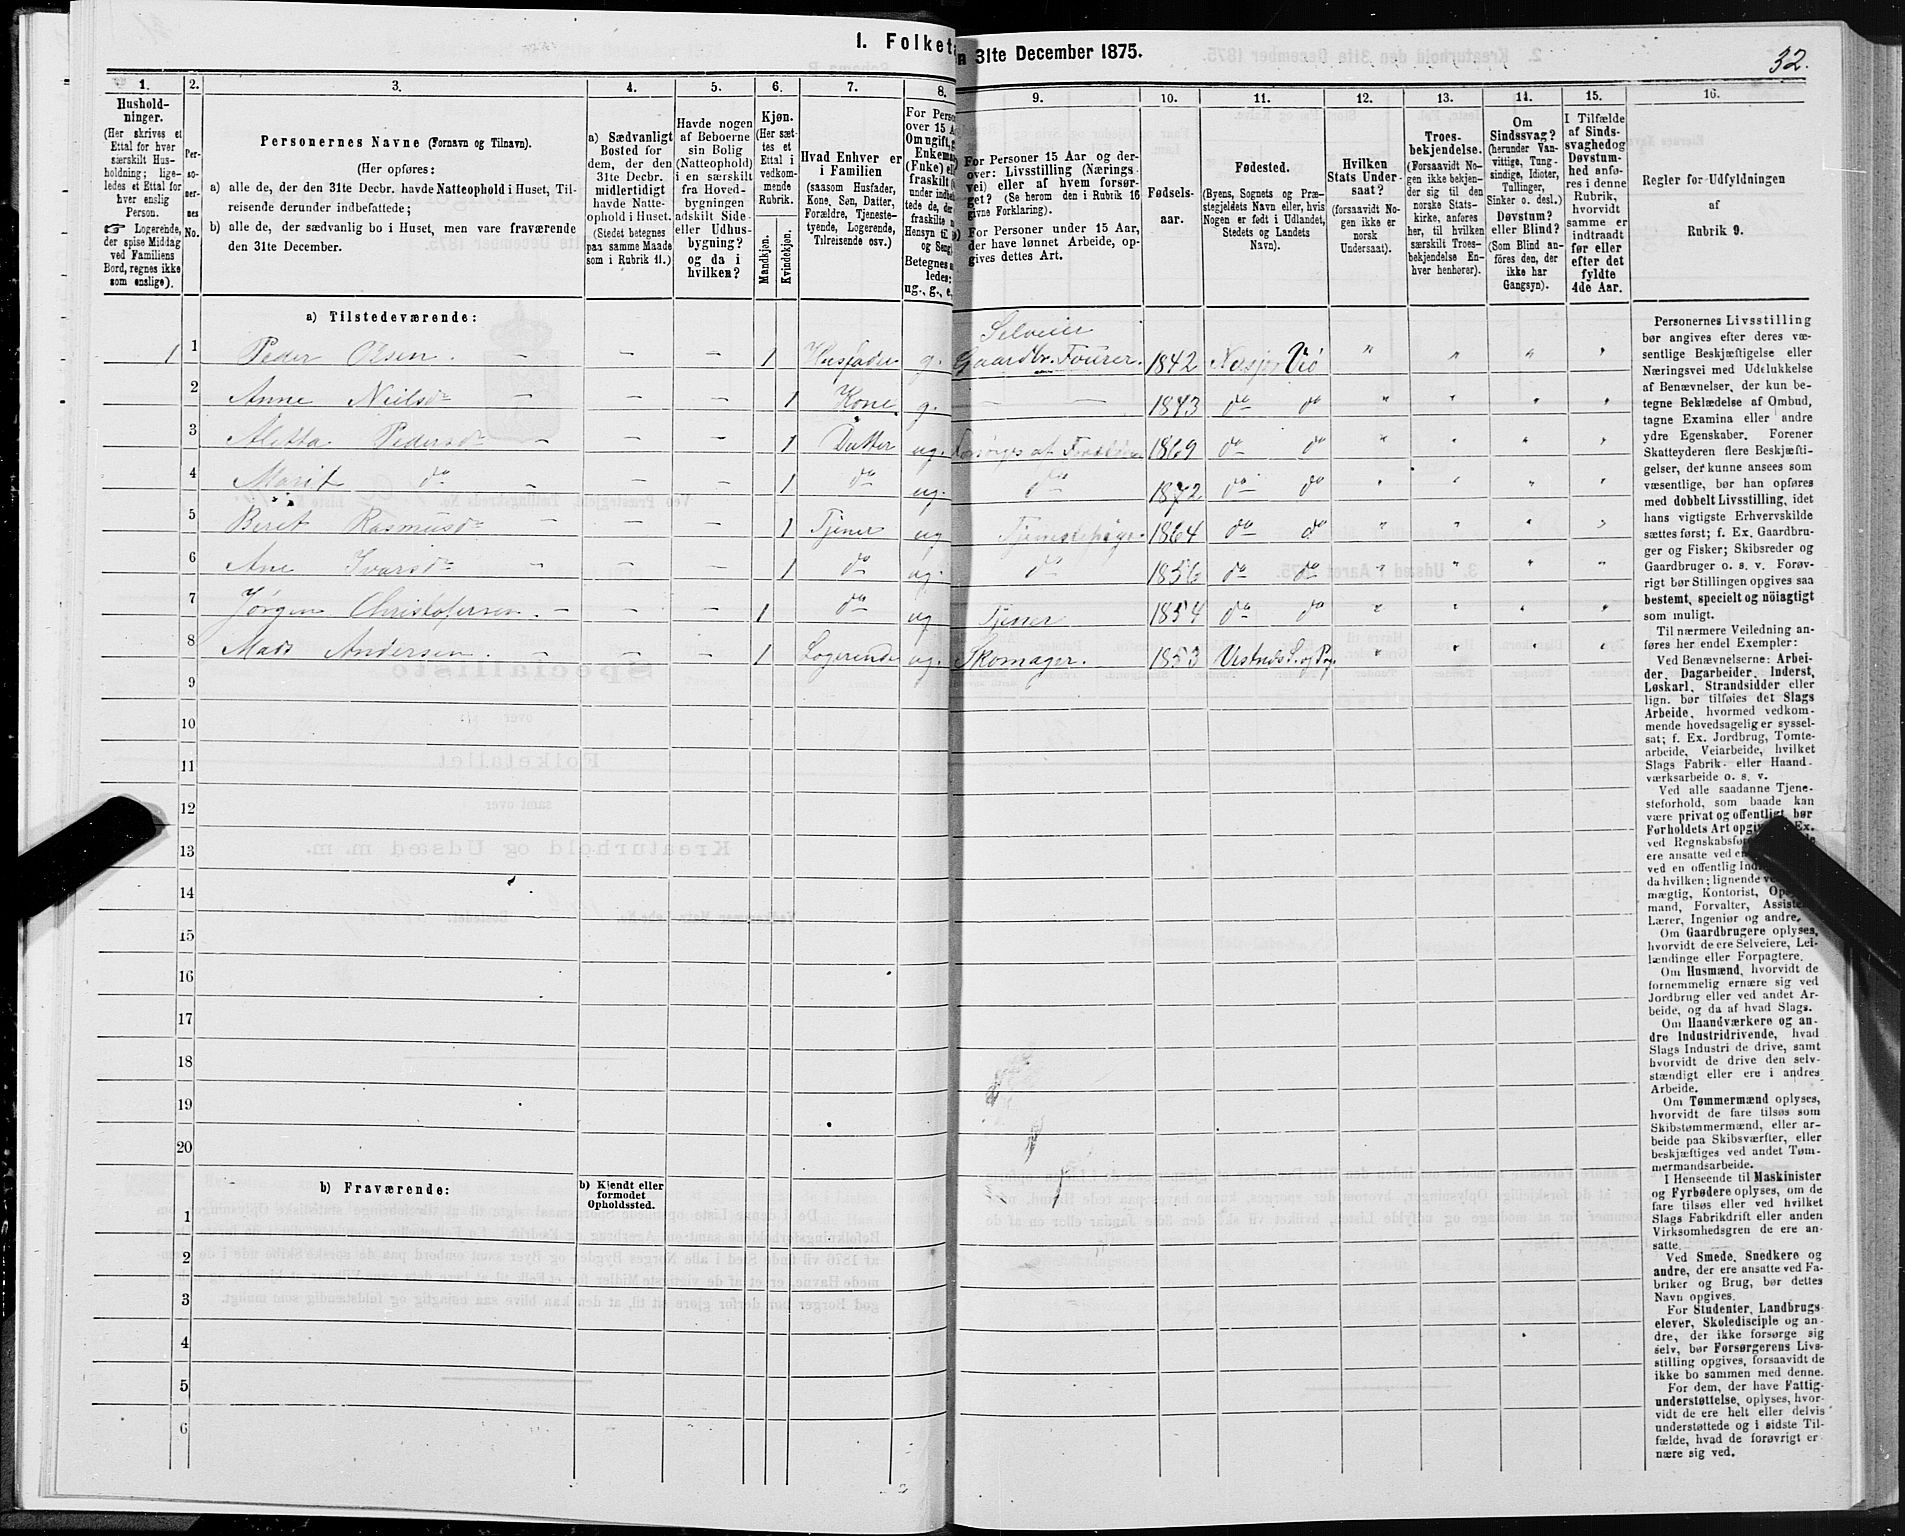 1. Folketa
n 31te December 1875.
32.
1. 2. 3. 4. 5. 6. 7. 8. 9. 10. 11. 12. 13. 14. 15. 16.
Hushold-
ninger.
(Her skrives et
Ettal for hver
særskilt Hus-
holdning; lige-
ledes et Ettal for
hver enslig
Person.
☞ Logerende,
der spise Middag
ved Familiens
Bord, regnes ikke
som enslige).
Per-
so-
ner-
nes
No.
Personernes Navne (Fornavn og Tilnavn).
(Her opføres:
a) alle de, der den 31te Decbr. havde Natteophold i Huset, Til-
reisende derunder indbefattede;
b) alle de, der sædvanlig bo i Huset, men vare fraværende
den 31te December.
a) Sædvanligt
Bosted for
dem, der den
31te Decbr.
midlertidigt
havde Natte-
ophold i Huset.
(Stedet betegnes
paa samme Maade
som i Rubrik 11.)
Havde nogen
af Beboerne
sin Bolig
(Natteophold)
i en særskilt
fra Hoved-
bygningen
adskilt Side-
eller Udhus-
bygning?
og da i
hvilken?
Kjøn.
(Her sæt-
tes et
Ettal i
vedkom-
mende
Rubrik.
Mandkjøn.
Kvindekjøn.
Hvad Enhver er
i Familien
(saasom Husfader,
Kone, Søn, Datter,
Forældre, Tjeneste-
tyende, Logerende,
Tilreisende osv.)
For Perso
over 15 A
Om ugift, g
Enkema
(Enke) el
fraskilt
under indbef
tede de,
fraskilte
Hensyn til
og Seng)
Betegnes
ledes:
ug., g., e,
a) For Personer 15 Aar og der-
over: Livsstilling (Nærings-
vei) eller af hvem forsør-
get? (Se herom den i Rubrik 16
givne Forklaring).
b) For Personer under 15 Aar,
der have lønnet Arbeide, op-
gives dettes Art.
Fødsels-
aar.
Fødested.
(Byens, Sognets og Præ-
stegjeldets Navn eller, hvis
Nogen er født i Udlandet,
Stedets og Landets
Navn).
Hvilken
Stats Under-
saat?
(forsaavidt No-
gen ikke er
norsk
Undersaat).
Troes-
bekjendelse.
(Forsaavidt No-
gen ikke bekjen-
der sig til den
norske Stats-
kirke, anføres
her, til hvilken
særskilt Troes-
bekjendelse En-
hver henhører).
Om
Sindssvag?
(herunder Van-
vittige, Tung-
sindige, Idioter,
Tullinger,
Sinker o. desl.)
Døvstum?
eller Blind?
(Som Blind an-
føres den, der
ikke har
Gangsyn).
I Tilfælde
af Sinds-
svaghedog
Døvstum-
hed anfø-
res i denne
Rubrik,
hvorvidt
samme er
indtraadt
før eller
efter det
fyldte
4de Aar.
Regler for Udfyldningen
af
Rubrik 9.
a) Tilstedeværende:
Selveier
1 1 Peder Olsen. – – – 1 Husfader g. Gaardbr. Fourer. 1842 Nersjø, Viø " " " "
2 Anne Nielsdr – – – 1 Kone g. – – 1843 do do " " " "
3 Aletta Pedersdr – – – 1 Datter ug. Forsørges af Forældrene 1869 do do " " " "
4 Marit do – – – 1 do ug. do 1872 do do " " " "
5 Beret Rasmusdr – – – 1 Tjener ug Tjenestepige. 1864 do do " " " "
6 Ane Ivarsdr – – – 1 do ug. do 1856 do do " " " "
7 Jørgen Christofersen. – – – 1 do ug Tjener 1854 do do " " " "
8 Mads Andersen. – – – 1 Logerende ug. Skomager. 1853 Vestnes S. og Pg. " " " "
9
10
11
12
13
14
15
16
17
18
19
20
b) Fraværende:
b) Kjendt eller
formodet
Opholdssted.
1
2
3
4
5
6
Personernes Livsstilling
bør angives efter deres væ-
sentlige Beskjæftigelse eller
Næringsvei med Udelukkelse
af Benævnelser, der kun be-
tegne Beklædelse af Ombud,
tagne Examina eller andre
ydre Egenskaber. Forener
Skatteyderen flere Beskjæfti-
gelser, der kunne ansees som
væsentlige, bør han opføres
med dobbelt Livsstilling, idet
hans vigtigste Erhvervskilde
sættes først; f. Ex. Gaardbru-
ger og Fisker; Skibsreder og
Gaardbruger o. s. v. Forøv-
rigt bør Stillingen opgives saa
bestemt, specielt og nöiagtigt
som muligt.
Til nærmere Veiledning an-
føres her endel Exempler:
Ved Benævnelserne: Arbei-
der, Dagarbeider, Inderst,
Løskarl, Strandsidder eller
lign. bør tilføies det Slags
Arbeide, hvormed vedkom-
mende hovedsagelig er syssel-
sat; f. Ex. Jordbrug, Tomte-
arbeide, Veiarbeide, hvilket
Slags Fabrik- eller Haand-
værksarbeide o. s. v.
Ved alle saadanne Tjene-
steforhold, som baade kan
være privat og offentligt, bør
Forholdets Art opgi Ex.
ved Regnskabsfø
ere ansatte ved en
ved en offentlig Ind
da hvilken; lignende
mægtig, Kontorist, Op
mand, Forvalter, Assiste
Lærer, Ingeniør og andre.
Om Gaardbrugere oplyses,
hvorvidt de ere Selveiere, Lei-
lændinge eller Forpagtere.
Om Husmænd, hvorvidt de
fornemmelig ernære sig ved
Jordbrug eller ved andet Ar-
beide, og da af hvad Slags.
Om Haandværkere og an-
dre Industridrivende, hvad
Slags Industri de drive, samt
hvorvidt de drive den selv-
stændigt eller ere i andres
Arbeide.
Om Tømmermænd oplyses,
hvorvidt de fare tilsøs som
Skibstømmermænd, eller ar-
beide paa Skibsværfter, eller
beskjæftiges ved andet Tøm-
mermandsarbeide.
I Henseende til Maskinister
og Fyrbødere oplyses, om de
fare tilsøs eller ved hvilket
Slags Fabrikdrift eller anden
Virksomhedsgren de ere an-
satte.
Ved Smede, Snedkere og
andre, der ere ansatte ved Fa-
briker og Brug, bør dettes
Navn opgives.
For Studenter, Landbrugs-
elever, Skoledisciple og an-
dre, der ikke forsørge sig
selv, bør Forsørgerens Livs-
stilling opgives, forsaavidt de
ikke bo sammen med denne.
For dem, der have Fattig-
understøttelse, oplyses, hvor-
vidt de ere helt eller delvis
understøttede og i sidste Til-
fælde, hvad de forøvrigt er-
nære sig ved.